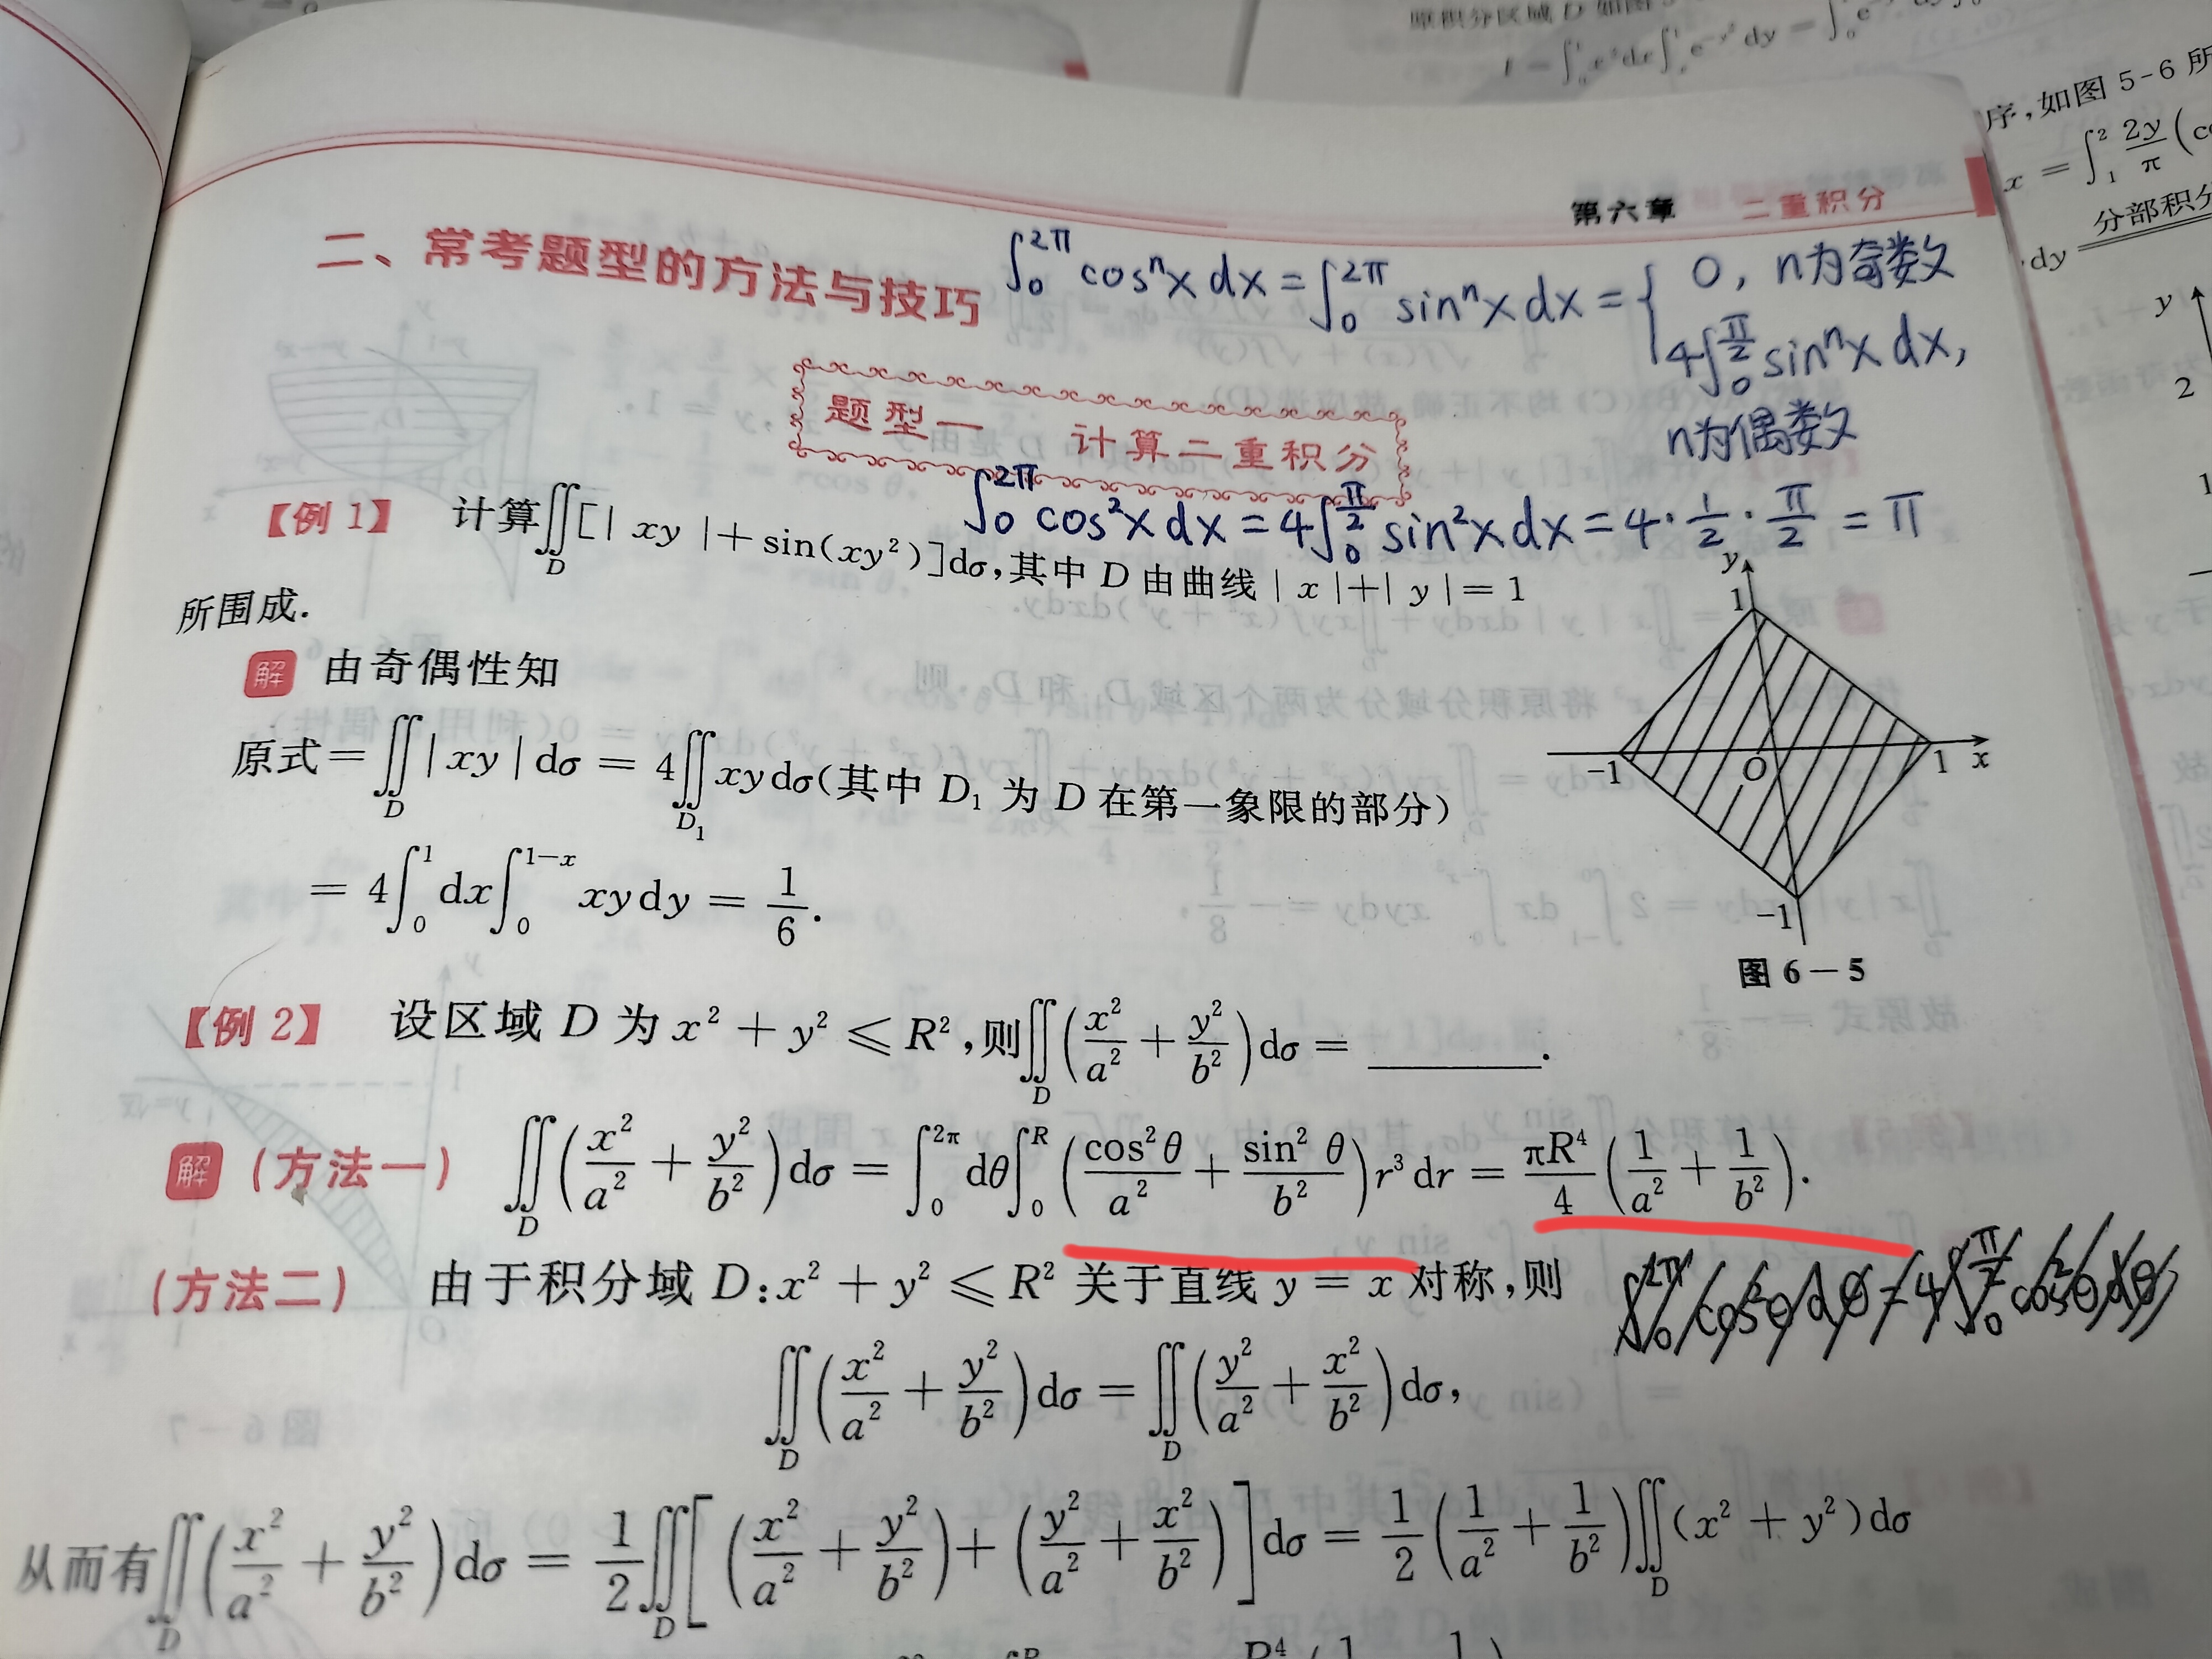 原积分区域 D 如图 5
序,如图 5-6 所
x = ∫₁² 2y/π (co
分部积分
·dy
第六章 二重积分
二、常考题型的方法与技巧
∫₀^{2π} cosⁿx dx = ∫₀^{2π} sinⁿx dx = { 0, n为奇数
4∫₀^{π/2} sinⁿx dx,
n为偶数
题型一 计算二重积分
∫₀^{2π} cos²x dx = 4∫₀^{π/2} sin²x dx = 4·1/2·π/2 = π
【例 1】 计算∬_D [| xy |+sin(xy²)]dσ,其中 D 由曲线 | x |+| y |= 1
所围成.
解 由奇偶性知
原式 = ∬_D | xy | dσ = 4∬_{D₁} xy dσ(其中 D₁ 为 D 在第一象限的部分)
= 4∫₀¹ dx∫₀^{1-x} xy dy = 1/6.
y
1
-1 O 1 x
-1
图 6-5
【例 2】 设区域 D 为 x² + y² ≤ R²,则∬_D (x²/a² + y²/b²)dσ = ______.
解 (方法一) ∬_D (x²/a² + y²/b²)dσ = ∫₀^{2π} dθ∫₀^R (cos²θ/a² + sin²θ/b²)r³ dr = πR⁴/4 (1/a² + 1/b²).
(方法二) 由于积分域 D:x² + y² ≤ R² 关于直线 y = x 对称,则
∫₀^{2π} cos²θ dθ = 4∫₀^{π/2} cos²θ dθ
∬_D (x²/a² + y²/b²)dσ = ∬_D (y²/a² + x²/b²)dσ,
从而有∬_D (x²/a² + y²/b²)dσ = 1/2 ∬_D [(x²/a² + y²/b²)+(y²/a² + x²/b²)]dσ = 1/2 (1/a² + 1/b²)∬_D (x² + y²)dσ